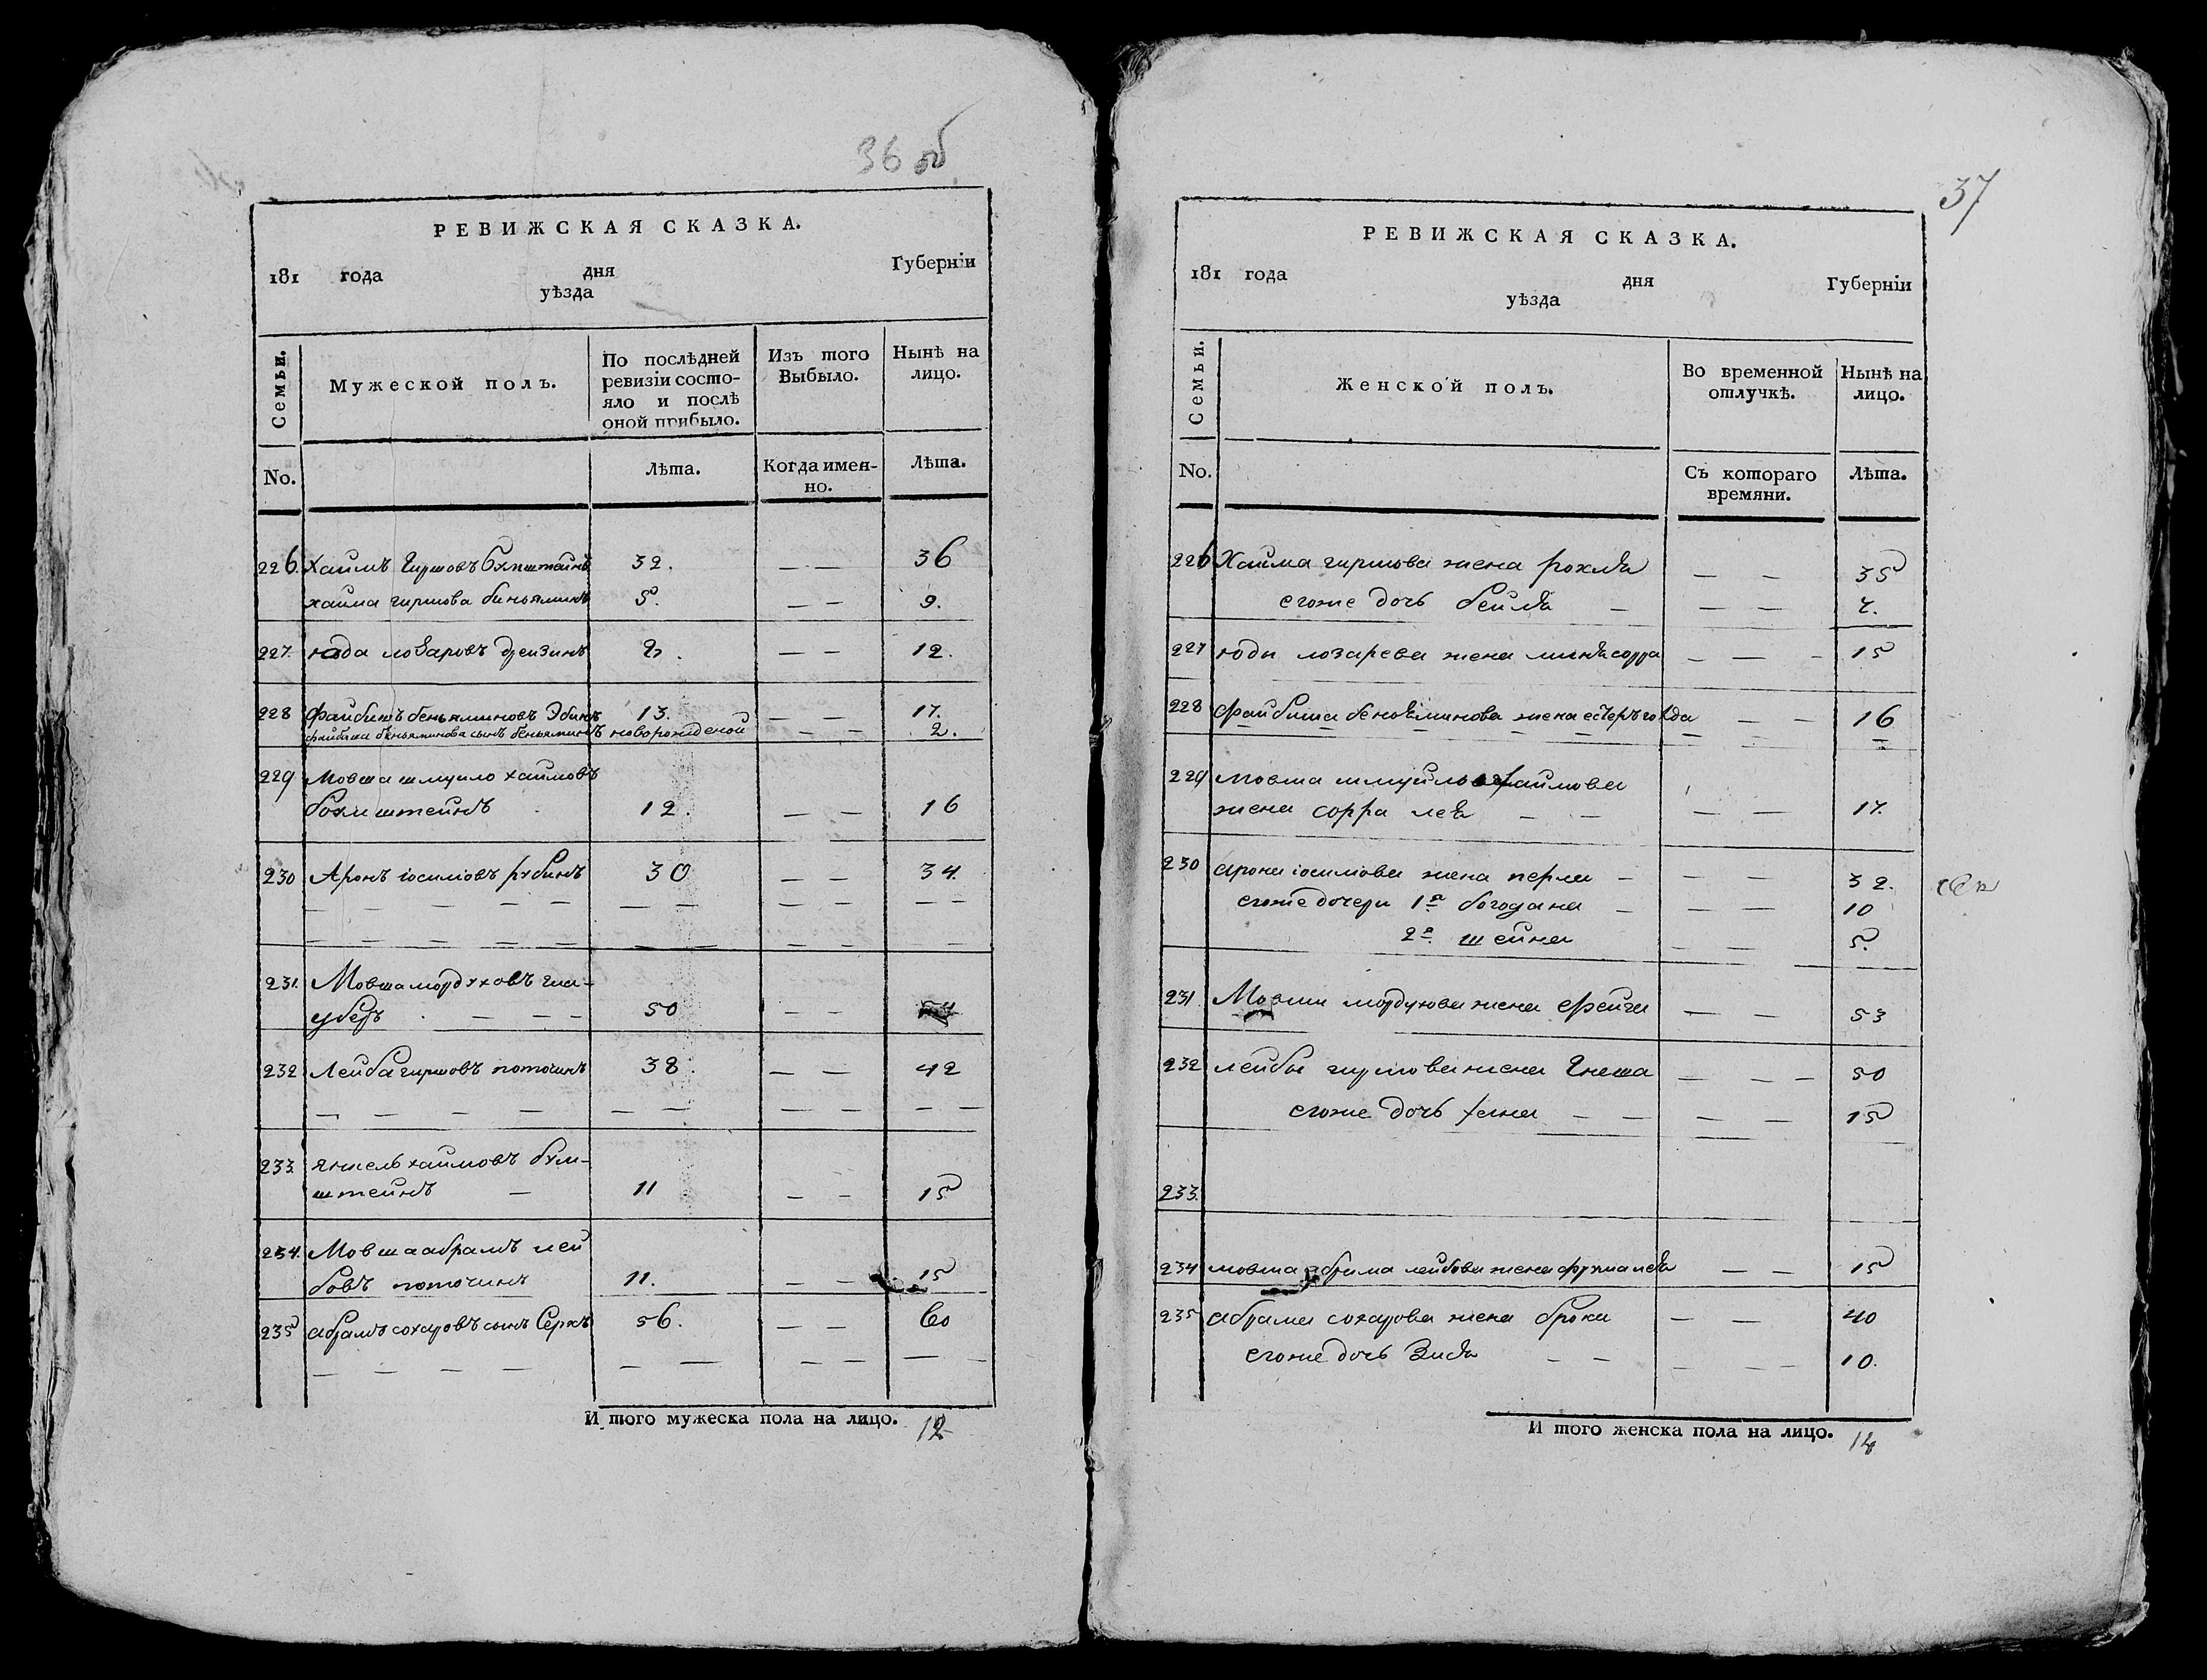 36 об
РЕВИЖСКАЯ СКАЗКА.
181 года дня Губерніи
уѣзда
Семьи.
Мужеской полъ.
По послѣдней
ревизіи состо-
яло и послѣ
оной прибыло.
Изъ того
Выбыло.
Нынѣ на
лицо.
No.
Лѣта.
Когда имен-
но.
Лѣта.
226. Хаимъ Гиршовъ 32. — — 36
хаима гиршова биньяминъ 5. — — 9.
227. юда лозаровъ — — 12.
228 Файбишъ беньяминовъ 13. — — 17.
файбиша беньяминова сынъ беньяминъ новорожденой — — 2.
229 Мовша шмуило хаимовъ
бохмштейнъ 12. — — 16
230 Аронъ іосиповъ рубинъ 30 — — 34
231. Мовша мордуховъ
50 — —
232 Лейба гиршовъ поточинъ 38. — — 42
233. янкель хаимовъ бхм-
штейнъ — 11 — — 15
234. Мовша абрамъ лей
бовъ поточинъ 11. — — 15
235 абрамъ сохаровъ сынъ 56. — — 60
И того мужеска пола на лицо. 12
37
РЕВИЖСКАЯ СКАЗКА.
181 года дня Губерніи
уѣзда
Семьи.
Женской полъ.
Во временной
отлучкѣ.
Нынѣ на
лицо.
No.
Съ котораго
времяни.
Лѣта.
226 Хаима гиршова жена рохля — — 35
егоже дочь бейля — — —
227 юды лозарева жена сорра — — — 15
228 файбиша беньяминова жена естеръ голда — — 16
229 мовша шмуйло хаимова
жена сорра лея — — — — 17.
230 арона іосипова жена перла — — — 32.
егоже дочери 1я богодана — — — 10
2я шейна — — 5.
231. Мовши мордухова жена фейга — — 53
232 лейбы гиршова жена Гнеша — — — 50
егоже дочь хана — — — — 15
233.
234 мовша абрама лейбова жена лея — — 15
235 абрама сохарова жена брока — — 40
егоже дочь Зисля — — — — — 10.
И того женска пола на лицо. 14